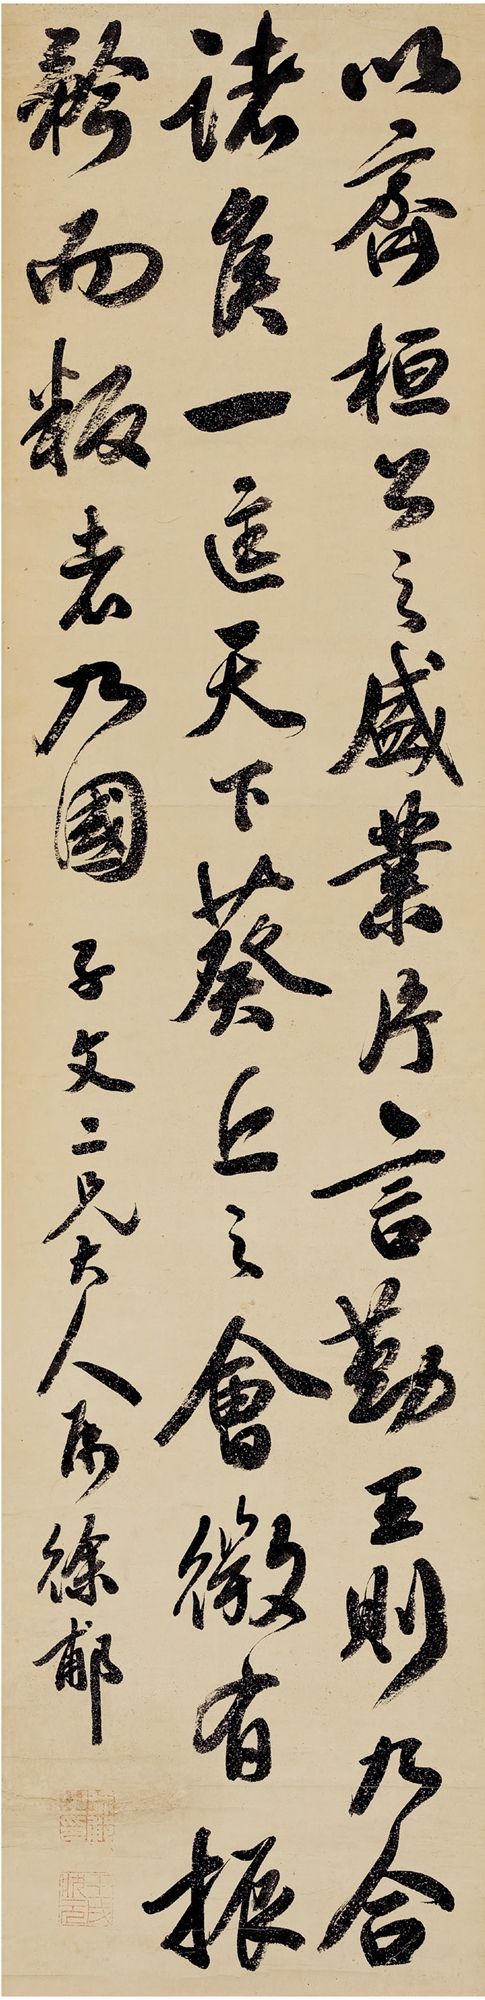 以齊桓公之盛業片言勤王則九合
諸侯一匡天下葵丘之會微有振
矜而叛者九國 子文二兄大人屬 徐郙